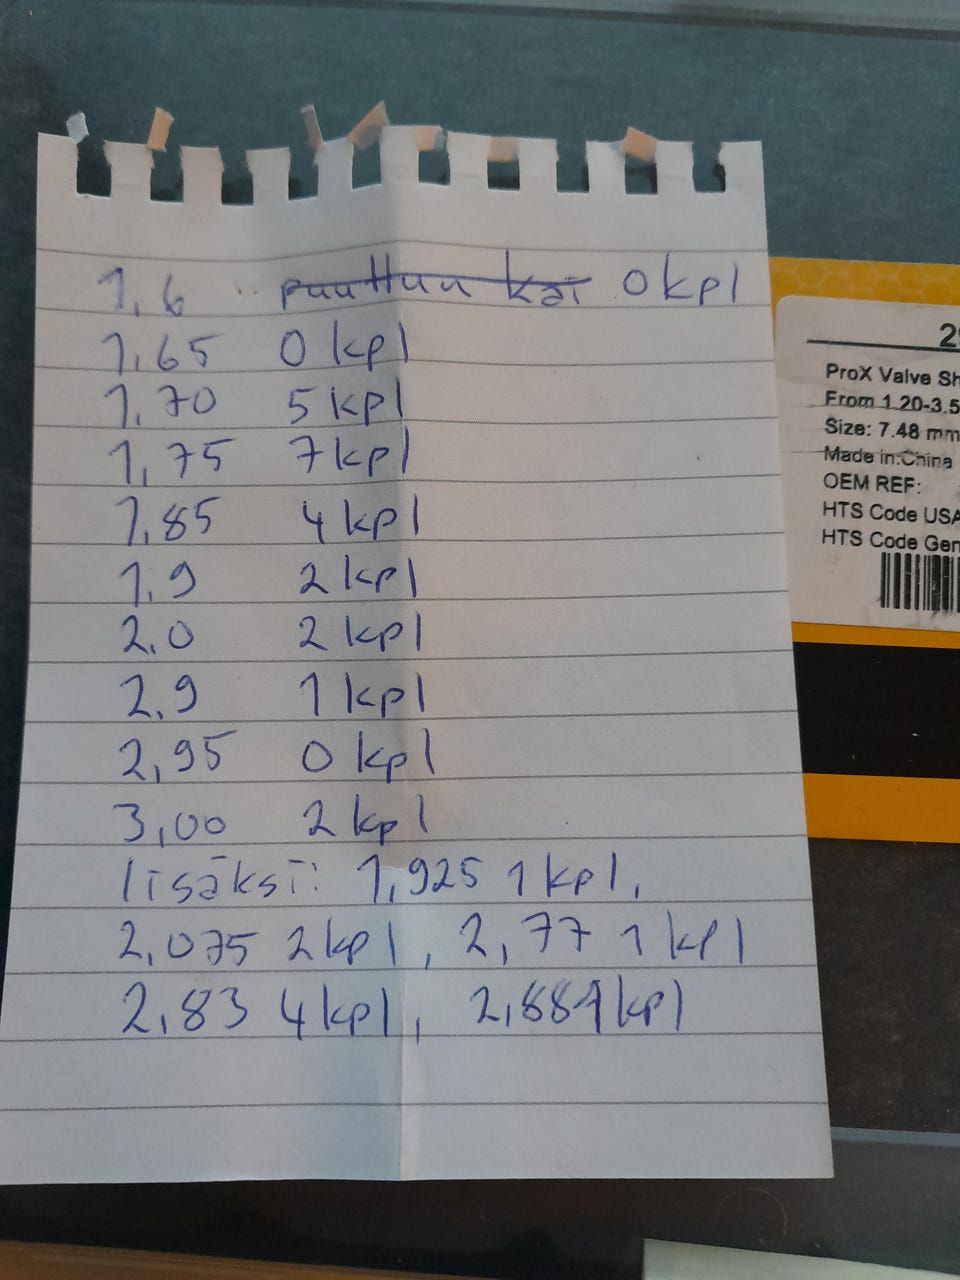 1,6 puuttuu kai 0 kpl
1,65 0 kpl
1,70 5 kpl
1,75 7 kpl
1,85 4 kpl
1,9 2 kpl
2,0 2 kpl
2,9 1 kpl
2,95 0 kpl
3,00 2 kpl
lisäksi: 1,925 1 kpl,
2,075 2 kpl, 2,77 1 kpl
2,83 4 kpl, 2,88 1 kpl
ProX Valve
From 1.20-3.5
Size: 7.48 mm
Made in:China
OEM REF:
HTS Code USA
HTS Code